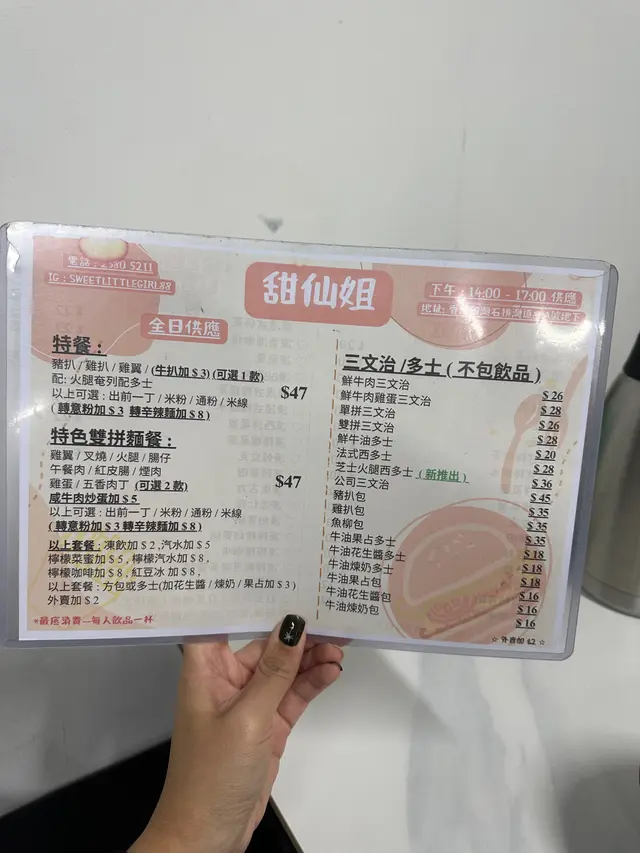 電話 : 2380 5211
IG : SWEETLITTLEGIRL88
甜仙姐
下午 : 14:00 - 17:00 供應
全日供應
特餐 :
豬扒 / 雞扒 / 雞翼 / (牛扒加 $ 3) (可選 1 款)
配: 火腿奄列配多士
以上可選 : 出前一丁 / 米粉 / 通粉 / 米線
( 轉意粉加 $ 3 轉辛辣麵加 $ 8 )
$47
特色雙拼麵餐 :
雞翼 / 叉燒 / 火腿 / 腸仔
午餐肉 / 紅皮腸 / 煙肉
雞蛋 / 五香肉丁 (可選 2 款)
$47
咸牛肉炒蛋加 $ 5
以上可選 : 出前一丁 / 米粉 / 通粉 / 米線
( 轉意粉加 $ 3 轉辛辣麵加 $ 8 )
以上套餐 : 凍飲加 $ 2 ,汽水加 $ 5
檸檬菜蜜加 $ 5 , 檸檬汽水加 $ 8 ,
檸檬咖啡加 $ 8 , 紅豆冰 加 $ 8 ,
以上套餐 : 方包或多士(加花生醬 / 煉奶 / 果占加 $ 3 )
外賣加 $ 2
*最底消費—每人飲品一杯
三文治 /多士 ( 不包飲品 )
鮮牛肉三文治 $ 26
鮮牛肉雞蛋三文治 $ 28
單拼三文治 $ 26
雙拼三文治 $ 28
鮮牛油多士 $ 20
法式西多士 $ 28
芝士火腿西多士 ( 新推出 ) $ 36
公司三文治 $ 45
豬扒包 $ 35
雞扒包 $ 35
魚柳包 $ 35
牛油果占多士 $ 18
牛油花生醬多士 $ 18
牛油煉奶多士 $ 18
牛油果占包 $ 16
牛油花生醬包 $ 16
牛油煉奶包 $ 16
☆ 外賣加 $2 ☆